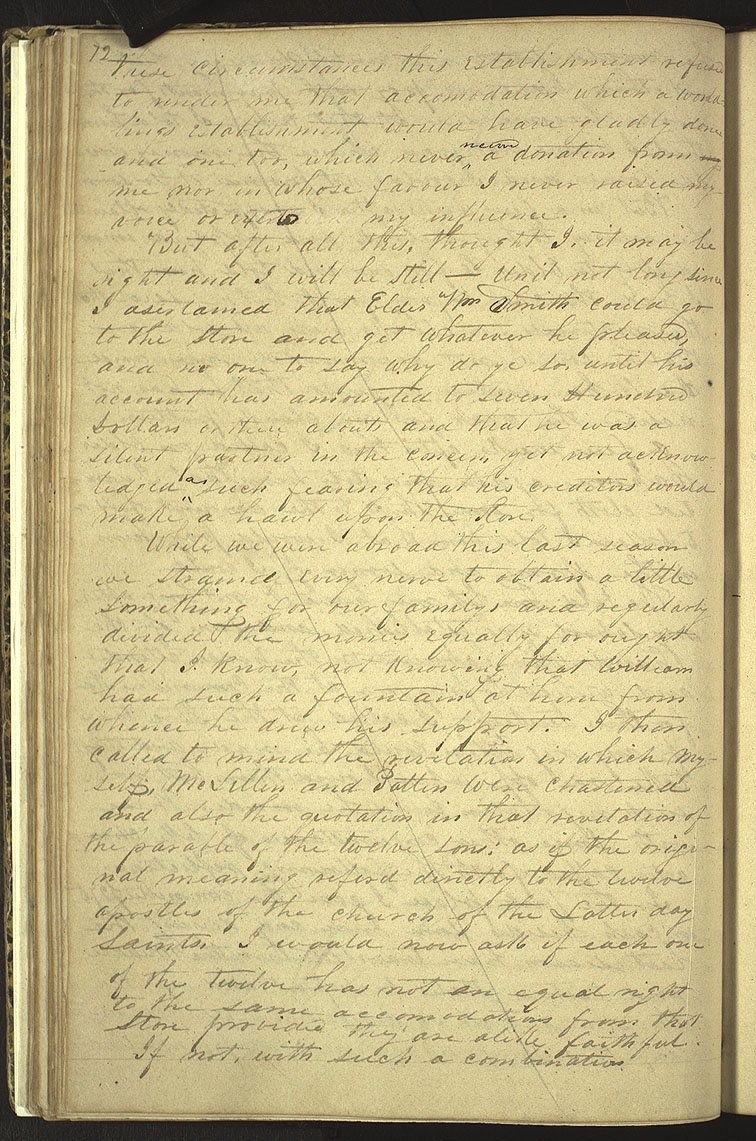 72
these circumstances this Establishment refuse
to render me that accomodation which a world-
lings establishment would have gladly done
and one too, which never receive a donation from
me nor in whose favour I never raised my
voice or exerted my influence.
But after all this, thought I, it may be
right and I will be still— Until not long since
I asertained that Elder Wm Smith could go
to the store and get whatever he pleased,
and no one to say why do ye so, until his
account has amounted to seven Hundred
Dollars or there abouts and that he was a
silent partner in the concern, yet not acknow-
ledged as such fearing that his creditors would
make a hawl upon the Store.
While we were abroad this last season
we strained every nerve to obtain a little
something for our familys and regularly
divided the monies equally for ought
that I know, not knowing that William
had such a fountain at home from
whence he drew his support. I then
called to mind the revelation in which my-
self, McLellen and Patten were chastened
and also the quotation in that revelation of
the parable of the twelve sons: as if the origi-
nal meaning referd directly to the twelve
apostles of the church of the Latter day
Saints. I would now ask if each one
of the twelve has not an equal right
to the same accomodations from that
Store provided they are alike faithful.
If not, with such a combination